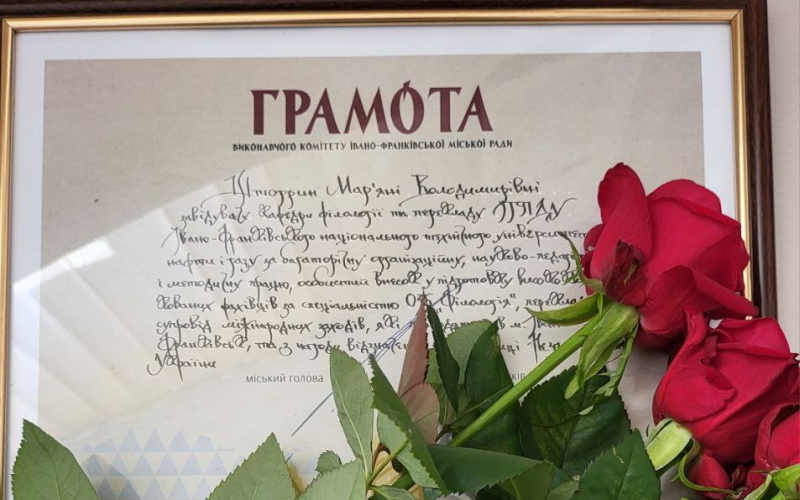 ГРАМОТА
ВИКОНАВЧОГО КОМІТЕТУ ІВАНО-ФРАНКІВСЬКОЇ МІСЬКОЇ РАДИ
Штогрин Мар'яні Володимирівні
завідувачу кафедри філології та перекладу
Івано-Франківського національного технічного університет
нафти і газу за багаторічну організаційну, науково-педаго
і методичну працю, особистий внесок у підготовку високо
кованих фахівців за спеціальністю 035 „Філологія", перекла
супровід міжнародних заходів, які в м. Іван
Франківськ, та з нагоди відзнач
України
міський голова